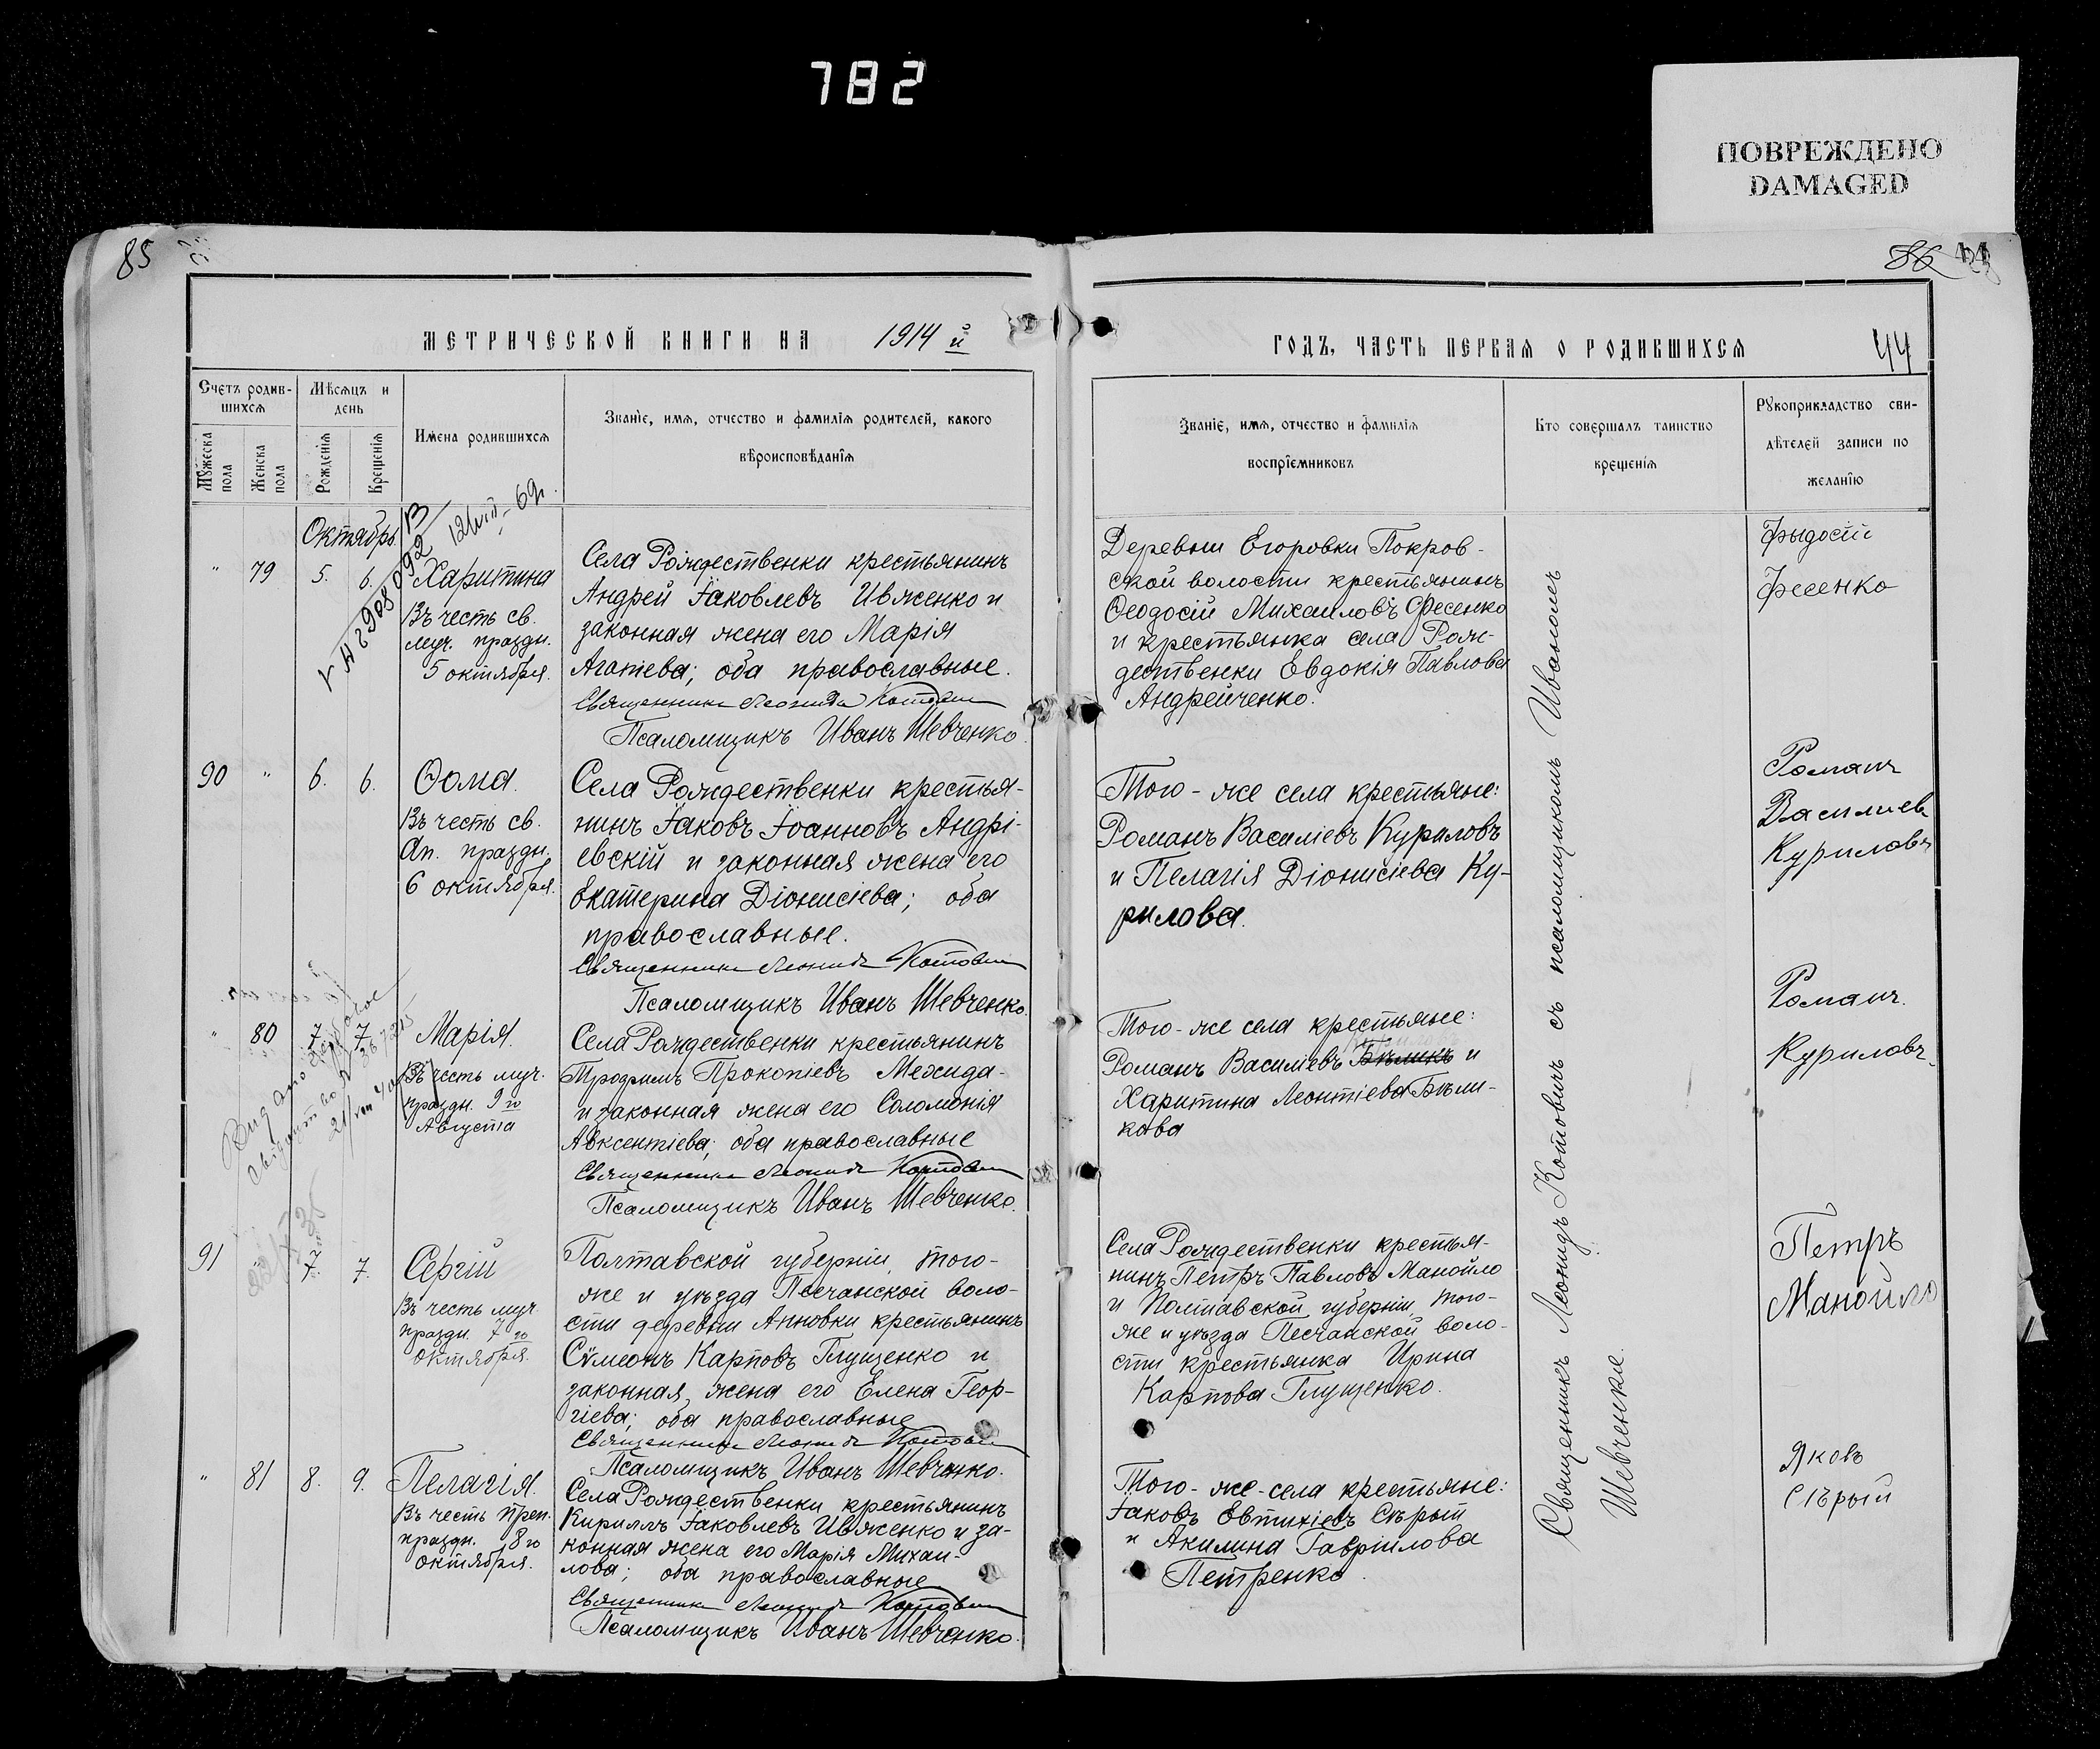 782
ПОВРЕЖДЕНО
DAMAGED
85
86
МЕТРИЧЕСКОЙ КНИГИ НА 1914 й
ГОДЪ, ЧАСТЬ ПЕРВАЯ О РОДИВШИХСЯ
44
Счетъ родив-
шихся
Мѣсяцъ и
день
Мужеска
пола
Женска
пола
Рожденія
Крещенія
Имена родившихся
Званіе, имя, отчество и фамилія родителей, какого
вѣроисповѣданія
Званіе, имя, отчество и фамилія
воспріемниковъ
Кто совершалъ таинство
крещенія
Рукоприкладство сви-
дѣтелей записи по
желанію
Октябрь
" 79 5. 6. Харитина
Въ честь св.
муч. праздн.
5 октября.
Села Рождественки крестьянинъ
Андрей Іаковлевъ Ивженко и
законная жена его Марія
Агатева; оба православные.
Священникъ Леонидъ Котович
Псаломщикъ Иванъ Шевченко.
Деревни Егоровки Покров-
ской волости крестьянинъ
Ѳеодосій Михаиловъ Фесенко
и крестьянка села Рож-
дественки Евдокія Павлова
Андрейченко.
Фыдосій
Фесенко
90 " 6. 6. Ѳома.
Въ честь св.
Ап. праздн.
6 октября.
Села Рождественки крестья-
нинъ Іаковъ Іоанновъ Андрі-
евскій и законная жена его
Екатерина Діонисіева; оба
православные.
Священникъ Леонидъ Котович
Псаломщикъ Иванъ Шевченко.
Того-же села крестьяне:
Романъ Василіевъ Куриловъ
и Пелагія Діонисіева Ку-
рилова.
Романъ
Василиев
Куриловъ
" 80 7. 7. Марія.
Въ честь муч.
праздн. 9 го
Августа
Села Рождественки крестьянинъ
Трофимъ Прокопіевъ Мехида-
и законная жена его Соломонія
Авксентіева; оба православные
Священникъ Леонидъ Котович
Псаломщикъ Иванъ Шевченко.
Того-же села крестьяне:
Романъ Василіевъ Бѣликъ и
Харитина Леонтіева Бѣли-
кова
Романъ.
Куриловъ.
91 " 7. 7. Сергій
Въ честь муч.
праздн. 7 го
октября.
Полтавской губерніи, того-
же и уѣзда Песчанской воло-
сти деревни Анновки крестьянинъ
Сѵмеонъ Карповъ Глущенко и
законная жена его Елена Геор-
гіева; оба православные
Священникъ Леонидъ Котович
Псаломщикъ Иванъ Шевченко.
Села Рождественки крестья-
нинъ Петръ Павловъ Манойло
и Полтавской губерніи, того-
же и уѣзда Песчанской воло-
сти крестьянка Ирина
Карпова Глущенко.
Петръ
Манойло
" 81 8. 9. Пелагія.
Въ честь преп.
праздн. 8 го
октября.
Села Рождественки крестьянинъ
Кириллъ Іаковлевъ Ивженко и за-
конная жена его Марія Михаи-
лова; оба православные
Священникъ Леонидъ Котович
Псаломщикъ Иванъ Шевченко.
Того-же-села крестьяне:
Іаковъ Евтихіевъ Сѣрый
и Акилина Гавріилова
Петренко.
Яковъ
Сѣрый
Священникъ Леонидъ Котовичъ съ псаломщикомъ Иваномъ
Шевченко.